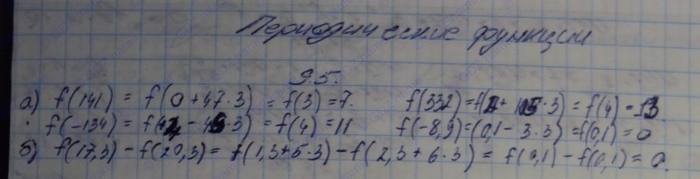 Периодические функции
9.5.
а) f(141) = f(0+47·3) = f(3) = 7. f(332) = f( + ·3) = f(4) =
f(-134) = f( - ·3) = f(4) = 11 f(-8,9) = (0,1 - 3·3) = f(0,1) = 0
б) f(17,3) - f(20,3) = f(1,3+5·3) - f(2,3+6·3) = f(0,1) - f(0,1) = 0.